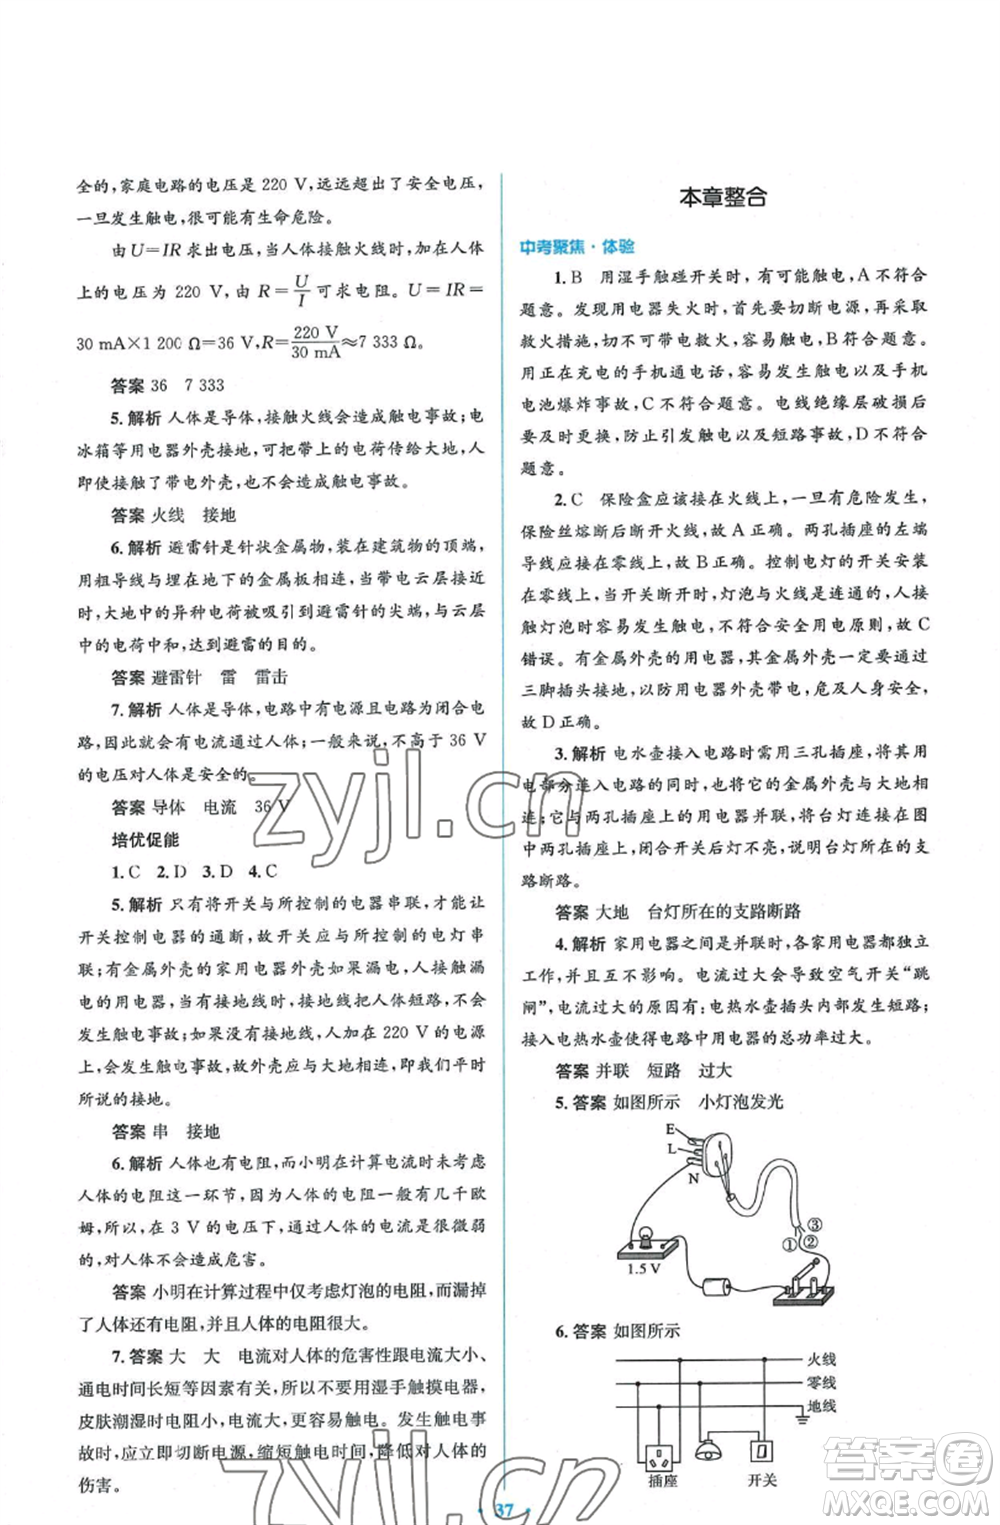 全的,家庭电路的电压是 220 V,远远超出了安全电压,
一旦发生触电,很可能有生命危险。
由 U=IR 求出电压,当人体接触火线时,加在人体
上的电压为 220 V,由 R=U/I 可求电阻。U=IR=
30 mA×1 200 Ω=36 V,R=220 V/30 mA≈7 333 Ω。
答案 36 7 333
5.解析 人体是导体,接触火线会造成触电事故;电
冰箱等用电器外壳接地,可把带来的电荷传给大地,人
即使接触了带电外壳,也不会造成触电事故。
答案 火线 接地
6.解析 避雷针是针状金属物,装在建筑物的顶端,
用粗导线与埋在地下的金属板相连,当带电云层接近
时,大地中的异种电荷被吸引到避雷针的尖端,与云层
中的电荷中和,达到避雷的目的。
答案 避雷针 雷 雷击
7.解析 人体是导体,电路中有电源且电路为闭合电
路,因此就会有电流通过人体;一般来说,不高于 36 V
的电压对人体是安全的。
答案 导体 电流 36 V
培优促能
1.C 2.D 3.D 4.C
5.解析 只有将开关与所控制的电器串联,才能让
开关控制电器的通断,故开关应与所控制的电灯串
联;有金属外壳的家用电器外壳如果漏电,人接触漏
电的用电器时,当有接地线时,接地线把人体短路,不会
发生触电事故;如果没有接地线,人加在 220 V 的电源
上,会造成触电事故,故外壳一定要接地,即我们平时
所说的接地。
答案 串 接地
6.解析 人体也有电阻,而小明在计算电流时未考虑
人体的电阻这一环节,因为人体电阻一般有几千欧
姆,所以,在 3 V 的电压下,通过人体的电流是很微弱
的,对人体不会造成危害。
答案 小明在计算过程中仅考虑灯泡的电阻,而漏掉
了人体还有电阻,并且人体的电阻很大。
7.答案 大 大 电流对人体的危害性跟电流大小、
通电时间长短等因素有关,所以不要用湿手触摸电器,
皮肤潮湿时电阻小,电流大,更容易触电。发生触电事
故时,应立即切断电源,缩短触电时间,降低对人体的
伤害。
本章整合
中考聚焦·体验
1.B 用湿手触碰开关时,有可能触电,A 不符合
题意。发现用电器失火时,首先要切断电源,再采取
救火措施,切不可带电救火,容易触电,B 符合题意。
用正在充电的手机通电话,容易发生用电器及手机
电池爆炸事故,C 不符合题意。电线绝缘层破损后应
及时更换,防止引发触电与短路事故,D 不符合
题意。
2.C 保险盒应该接在火线上,一旦有危险发生,
保险丝熔断后断开火线,故 A 正确。两孔插座的左端
导线应该接在零线上,故 B 正确。控制电灯的开关安装
在零线上,当开关断开时,灯泡与火线是连通的,人接
触灯泡时容易发生触电,不符合安全用电原则,故 C
错误。有金属外壳的用电器,其金属外壳必须通过
三脚插头接地,以防用电器外壳带电,危及人身安全,
故 D 正确。
3.解析 电水壶接入电路时需用三孔插座,在把用
电部分连入电路的同时,也把它的金属外壳与大地相
连;它与两孔插座上的用电器并联,将台灯接入图
中两孔插座后,闭合开关后灯不亮,说明台灯所在的支
路断路。
答案 大地 台灯所在的支路断路
4.解析 家用电器之间是并联时,各家用电器都独立
工作,并且互不影响。电流过大会导致空气开关“跳
闸”,电流过大的原因有:电热水壶插头内部发生短路;
接入电热水壶使得电路中用电器的总功率过大。
答案 并联 短路 过大
5.答案 如图所示 小灯泡发光
E
L
N
③
①
②
1.5 V
6.答案 如图所示
火线
零线
地线
插座
开关
37
zyjl.cn
zyjl.cn
答案圈
MXQE.COM